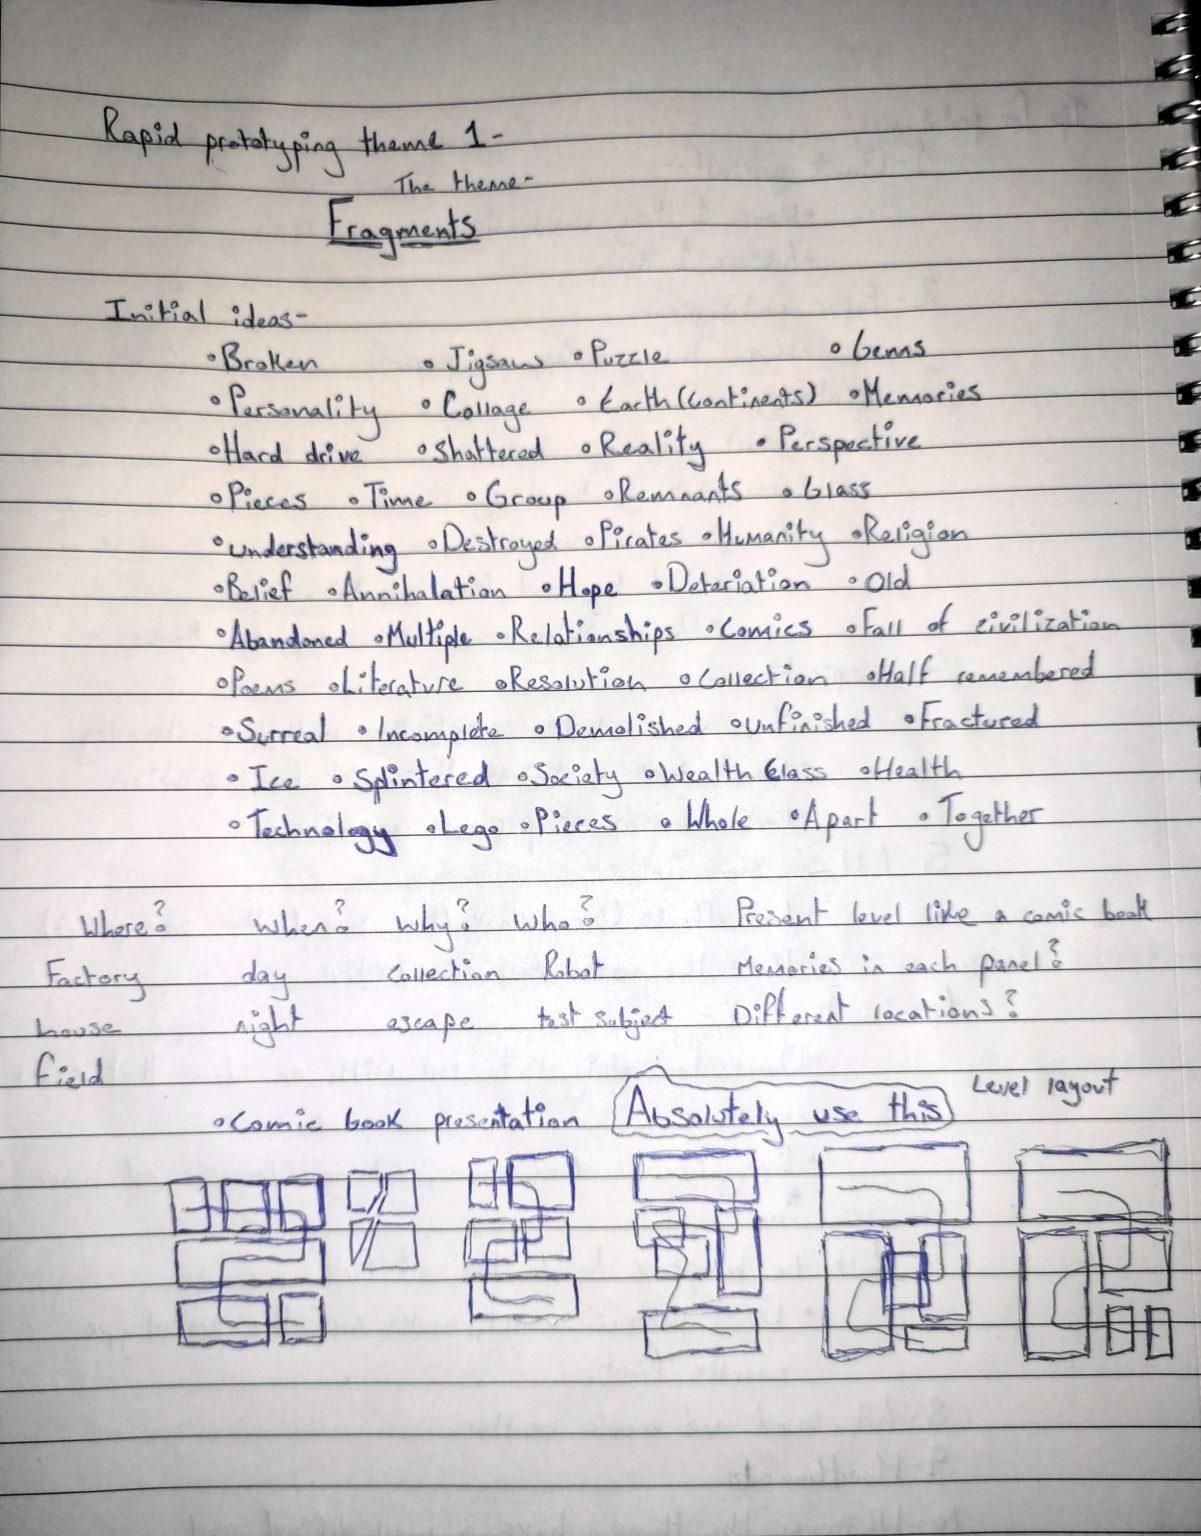 Rapid prototyping theme 1-
The theme-
Fragments
Initial ideas-
•Broken •Jigsaws •Puzzle •Gems
•Personality •Collage •Earth (continents) •Memories
•Hard drive •Shattered •Reality •Perspective
•Pieces •Time •Group •Remnants •Glass
•understanding •Destroyed •Pirates •Humanity •Religion
•Belief •Annihalation •Hope •Deteriation •Old
•Abandoned •Multiple •Relationships •Comics •Fall of civilization
•Poems •Literature •Resolution •Collection •Half remembered
•Surreal •Incomplete •Demolished •unfinished •Fractured
•Ice •Splintered •Society •Wealth Class •Health
•Technology •Lego •Pieces •Whole •Apart •Together
Where? When? Why? Who? Present level like a comic book
Factory day collection Robot Memories in each panel?
house night escape test subject Different locations?
field
•Comic book presentation Absolutely use this Level layout